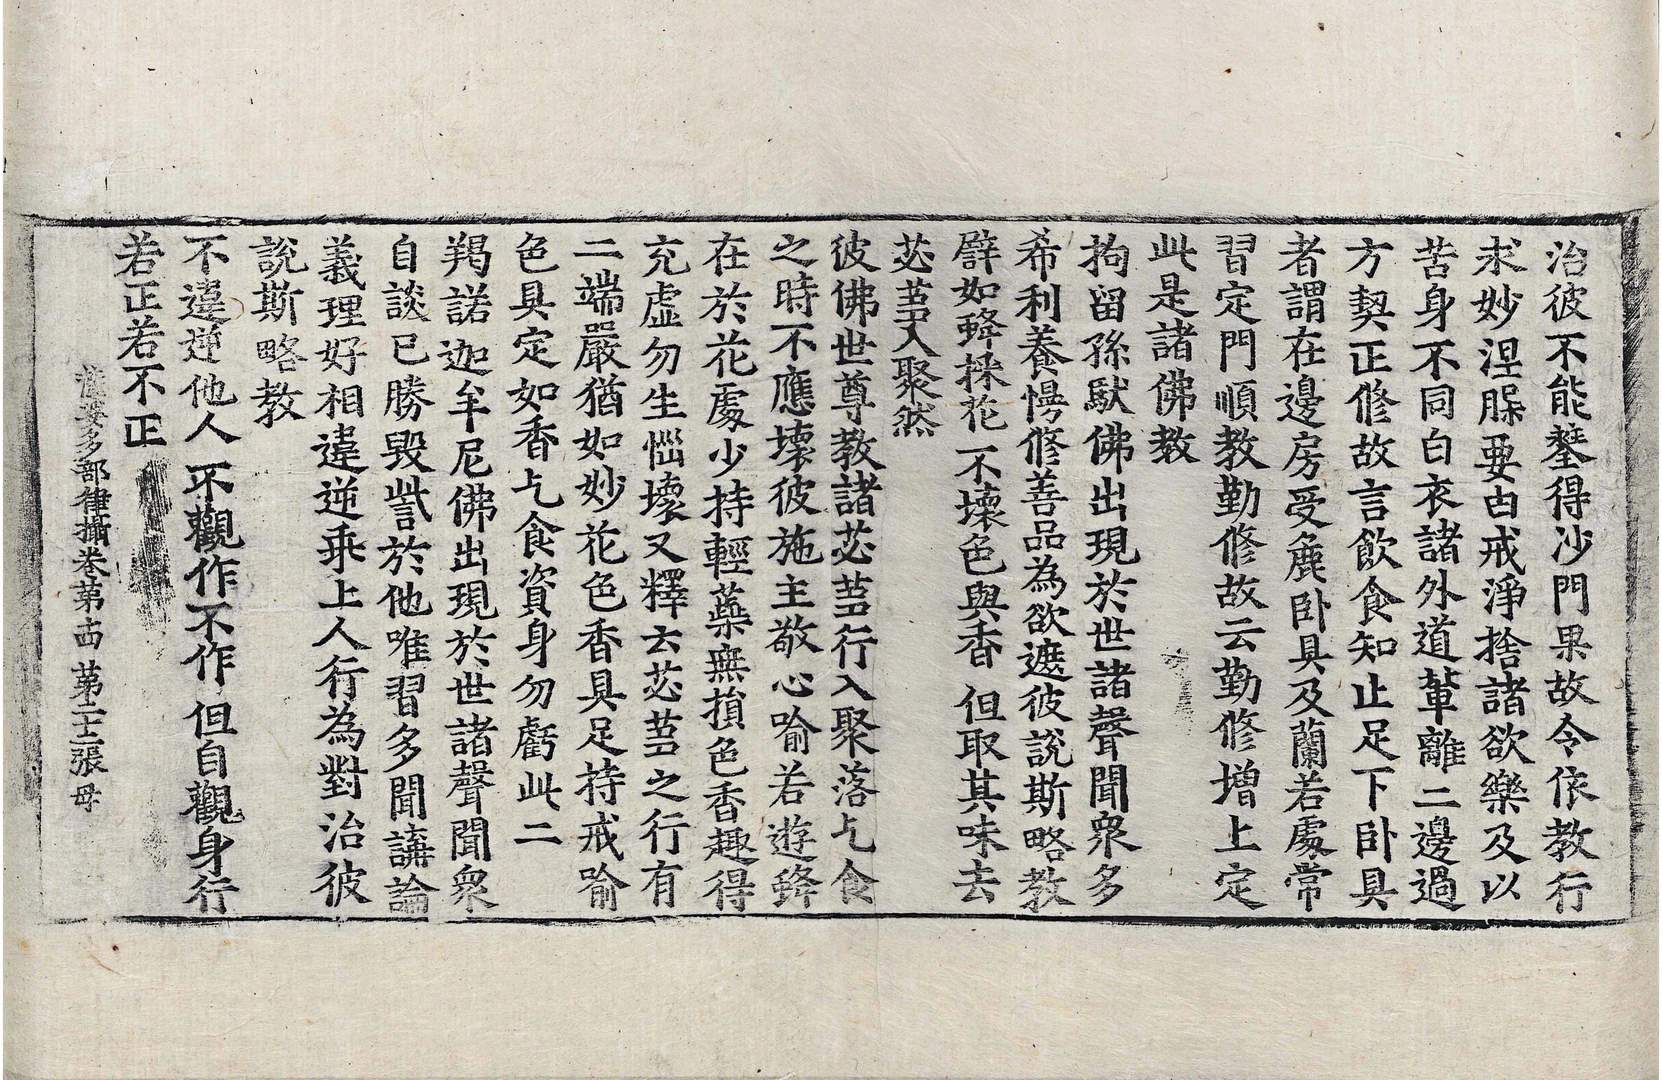 治彼不能螫得沙門果故令依教行
求妙涅槃要由戒淨捨諸欲樂及以
苦身不同白衣諸外道輩離二邊過
方契正修故言飲食知止足下卧具
者謂在邊房受麁卧具及蘭若處常
習定門順教勤修故云勤修增上定
此是諸佛教
拘留孫馱佛出現於世諸聲聞衆多
希利養慢修善品為欲遮彼說斯略教
譬如蜂採花 不壞色與香 但取其味去
苾蒭入聚然
彼佛世尊教諸苾蒭行入聚落乞食
之時不應壞彼施主敬心喻若遊蜂
在於花處少持輕蘂無損色香趣得
充虛勿生惱壞又釋云苾蒭之行有
二端嚴猶如妙花色香具足持戒喻
色具定如香乞食資身勿虧此二
羯諾迦牟尼佛出現於世諸聲聞衆
自談已勝毀訾於他唯習多聞講論
義理好相違逆乖上人行為對治彼
說斯略教
不違逆他人 不觀作不作 但自觀身行
若正若不正
薩婆多部律攝卷第十四 第二十三張 母